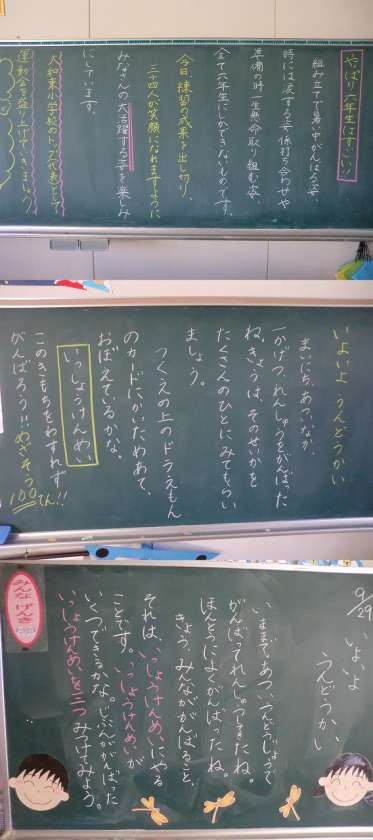 やっぱり六年生はすごい!
組み立てで暑い中がんばる姿
時には涙する姿 係打ち合わせや
準備の時一生懸命取り組む姿、
全て六年生にしかできないものです。
今日、練習の成果を出し切り、
三十四人が笑顔になれますように
みなさんの大活躍する姿を楽しみ
にしています。
大和東小学校のトップ代表として
運動会を盛り上げていきましょう。
いよいよ うんどうかい
まいにち、あつい、なか、
一かげつ、れんしゅうをがんばった
ね。きょうは、そのせいかを
たくさんのひとにみてもらい
ましょう。
つくえの上のドラえもん
のカードにかいためあて、
おぼえているかな。
いっしょうけんめい
このきもちをわすれず
がんばろう!!めざそう
100てん!!
9/29
いよいよ
うんどうかい
いままで、あつい、うんどうじょうで
がんばってれんしゅうしてきたね。
ほんとうによくがんばったね。
きょう、みんながんばること、
それは、いっしょうけんめいにやる
ことです。いっしょうけんめいが
いくつできるかな。じぶんががんばった
いっしょうけんめいを三つみつけてみよう。
みんな げんき